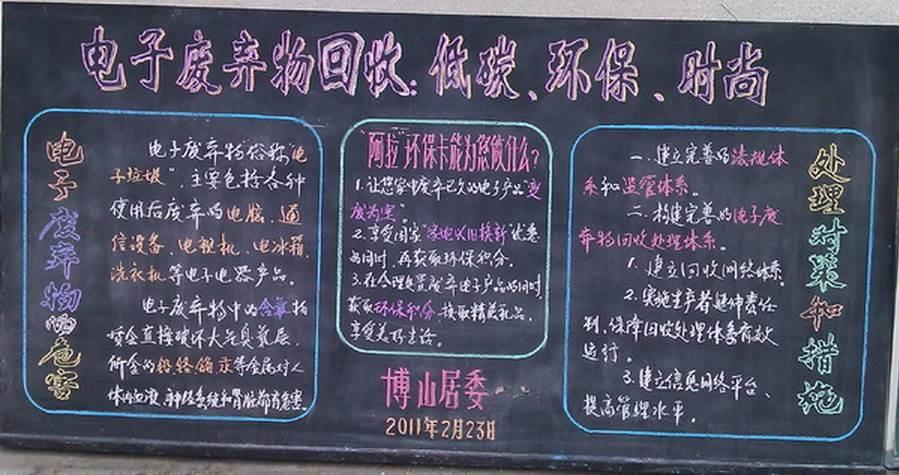 电子废弃物回收:低碳、环保、时尚
电子废弃物的危害
电子废弃物俗称"电
子垃圾",主要包括各种
使用后废弃的电脑、通
信设备、电视机、电冰箱、
洗衣机等电子电器产品。
电子废弃物中的含氟
直接破坏大气臭氧层。
所含的铅铬镉汞等金属对人
体的血液、神经系统和肾脏都有危害
"阿拉"环保卡能为您做什么?
1.让您家中废弃已久的电子产品"变
废为宝"。
2.享受国家"家电以旧换新"优惠
的同时,再获取环保积分。
3.在合理处置废弃电子产品的同时,
获取环保积分,换取精美礼品,
享受美好生活。
博山居委
2011年2月23日
处理对策和措施
一.建立完善的法规体
系和监管体系。
二.构建完善的电子废
弃物回收处理体系。
1.建立回收网络体系
2.实施生产者延伸责任
制,保障回收处理体系有效
运行。
3.建立信息网络平台、
提高管理水平。